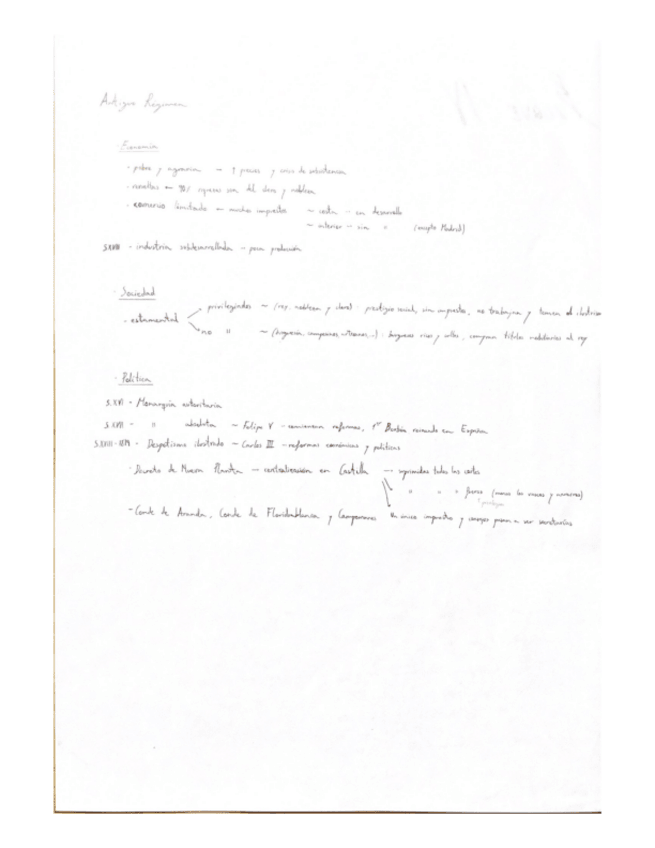 Antiguo Régimen
· Economía
· pobre y agraria → ↑ precios y crisis de subsistencia
· revueltas → tierras son del clero y nobleza
· comercio limitado → muchos impuestos ~ costa - en desarrollo
~ interior - sin " (excepto Madrid)
S.XVIII - industria subdesarrollada - poca producción
· Sociedad
· estamental
privilegiados ~ (rey, nobleza y clero) : prestigio social, sin impuestos, no trabajan y tienen el
no " ~ (burguesía, campesinos, artesanos,...) : burgueses ricos y cultos, compran títulos nobiliarios al rey
· Política
S.XVI - Monarquía autoritaria
S.XVII - " absoluta ~ Felipe V - comienzan reformas, 1er Borbón reinando en España
S.XVIII - Despotismo ilustrado ~ Carlos III - reformas económicas y políticas
· Decreto de Nueva Planta - centralización en Castilla → suprimidas todas las cortes
" " " fueros (menos los vascos y navarros)
- Conde de Aranda, Conde de Floridablanca y Campomanes Un único impuesto y consejos pasan a ser secretarías